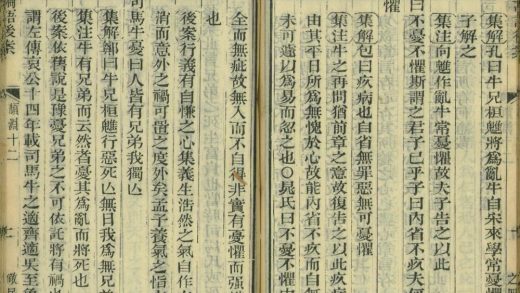 集解孔曰牛兄桓魋將爲亂牛自宋來學常憂懼
子解之
集注向魋作亂牛常憂懼故夫子告之以此
曰不憂不懼斯謂之君子已乎子曰內省不疚
懼
集解包曰疚病也自省無罪惡無可憂懼
集注牛之再問猶前章之意故復告之以此疚
由其平日所爲無愧於心故能內省不疚而自無
未可遽以爲易而忽之也○晁氏曰不憂不懼
全而無疵故無入而不自得非實有憂懼而强
也
後案行義有自慊之心集義生浩然之氣自作
消而意外之禍可置之度外矣孟子養氣之悟
司馬牛憂曰人皆有兄弟我獨亾
集解鄭曰牛兄桓魋行惡死亾無日我爲無兄
集注牛有兄弟而云然者憂其爲亂而將死也
後案依舊說是豫憂兄弟之不可依託將有禍
謂左傳哀公十四年載司馬牛之適齊適吳至
語後案 顏淵十二